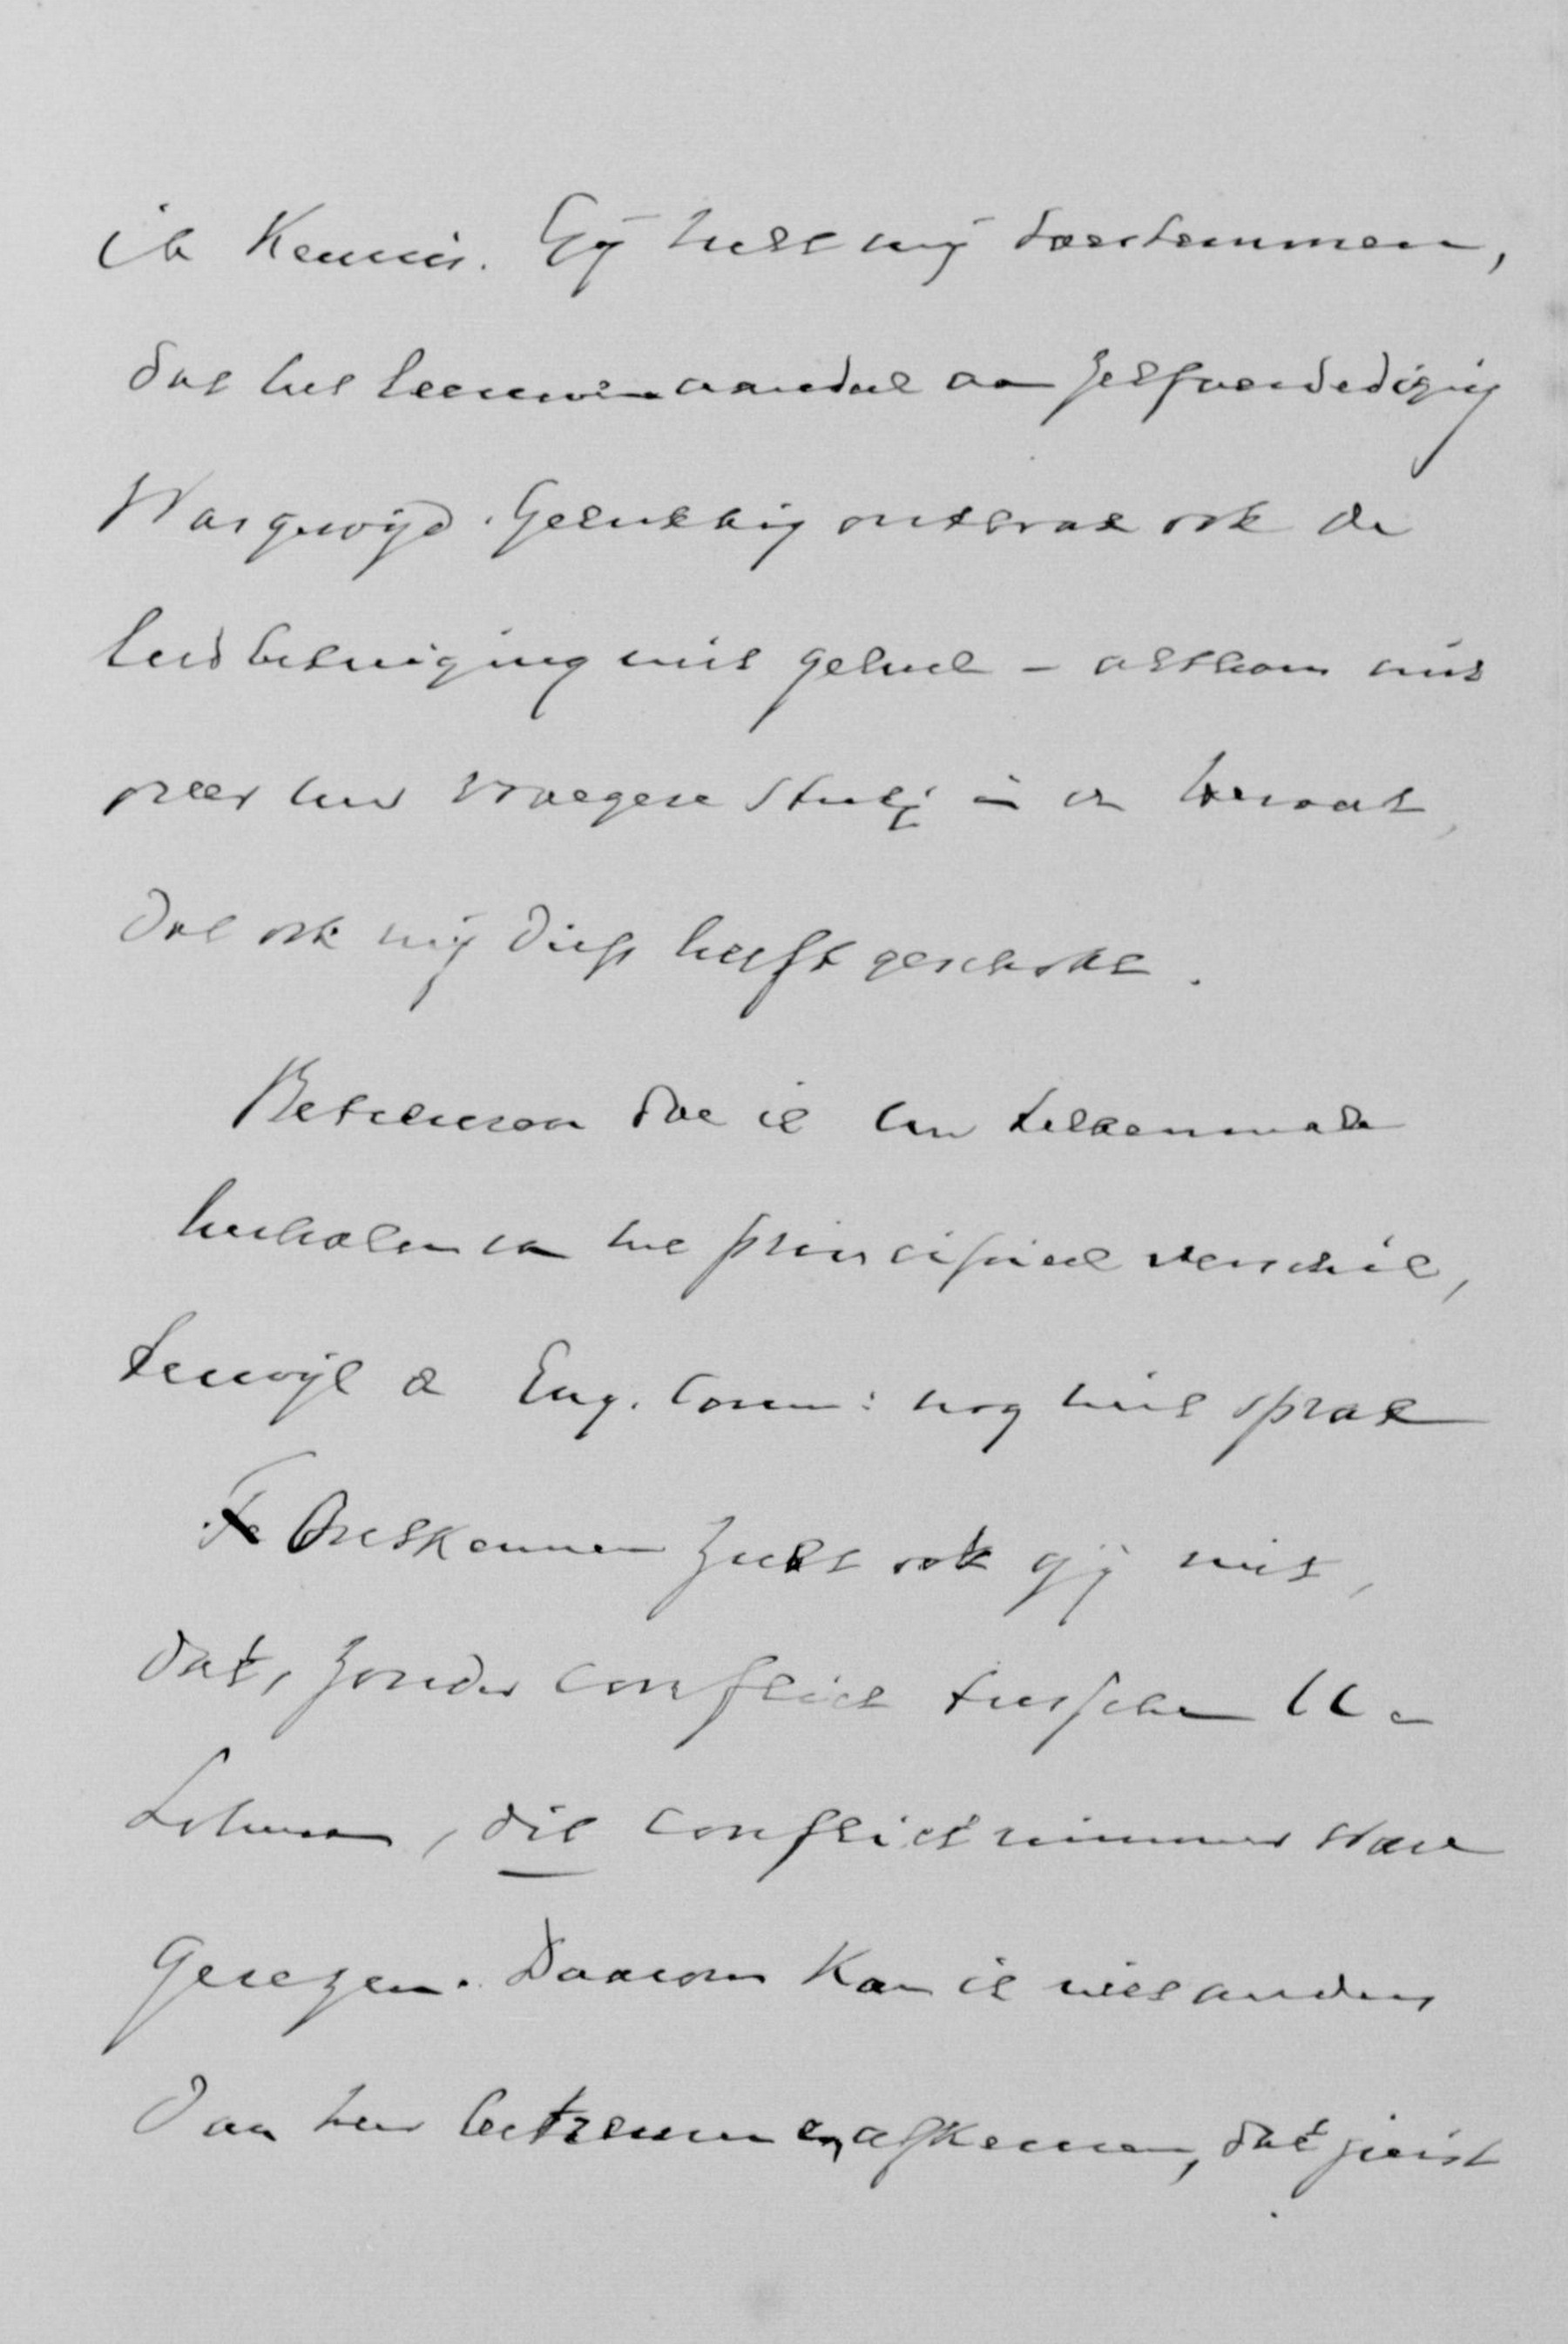 ik kennis. Gij zult mij toestemmen,
dat het leeuwenaandeel aan zelfverdediging
was gewijd. Gelukkig ontbrak ook de
leedbetuiging niet geheel – althans niet
over het vroegere stuk in de Heraut,
dat ook mij diep heeft geschokt.
Betreuren doe ik het telkenmale
herhalen van het principieel verschil,
terwijl de Enq. Comm: nog niet sprak
Ontkennen zult ook gij niet,
dat, zonder conflict tusschen U en
Lohman, dit conflict nimmer ware
gerezen. Daarom kan ik niet anders
dan het betreuren en afkeuren, dat juist